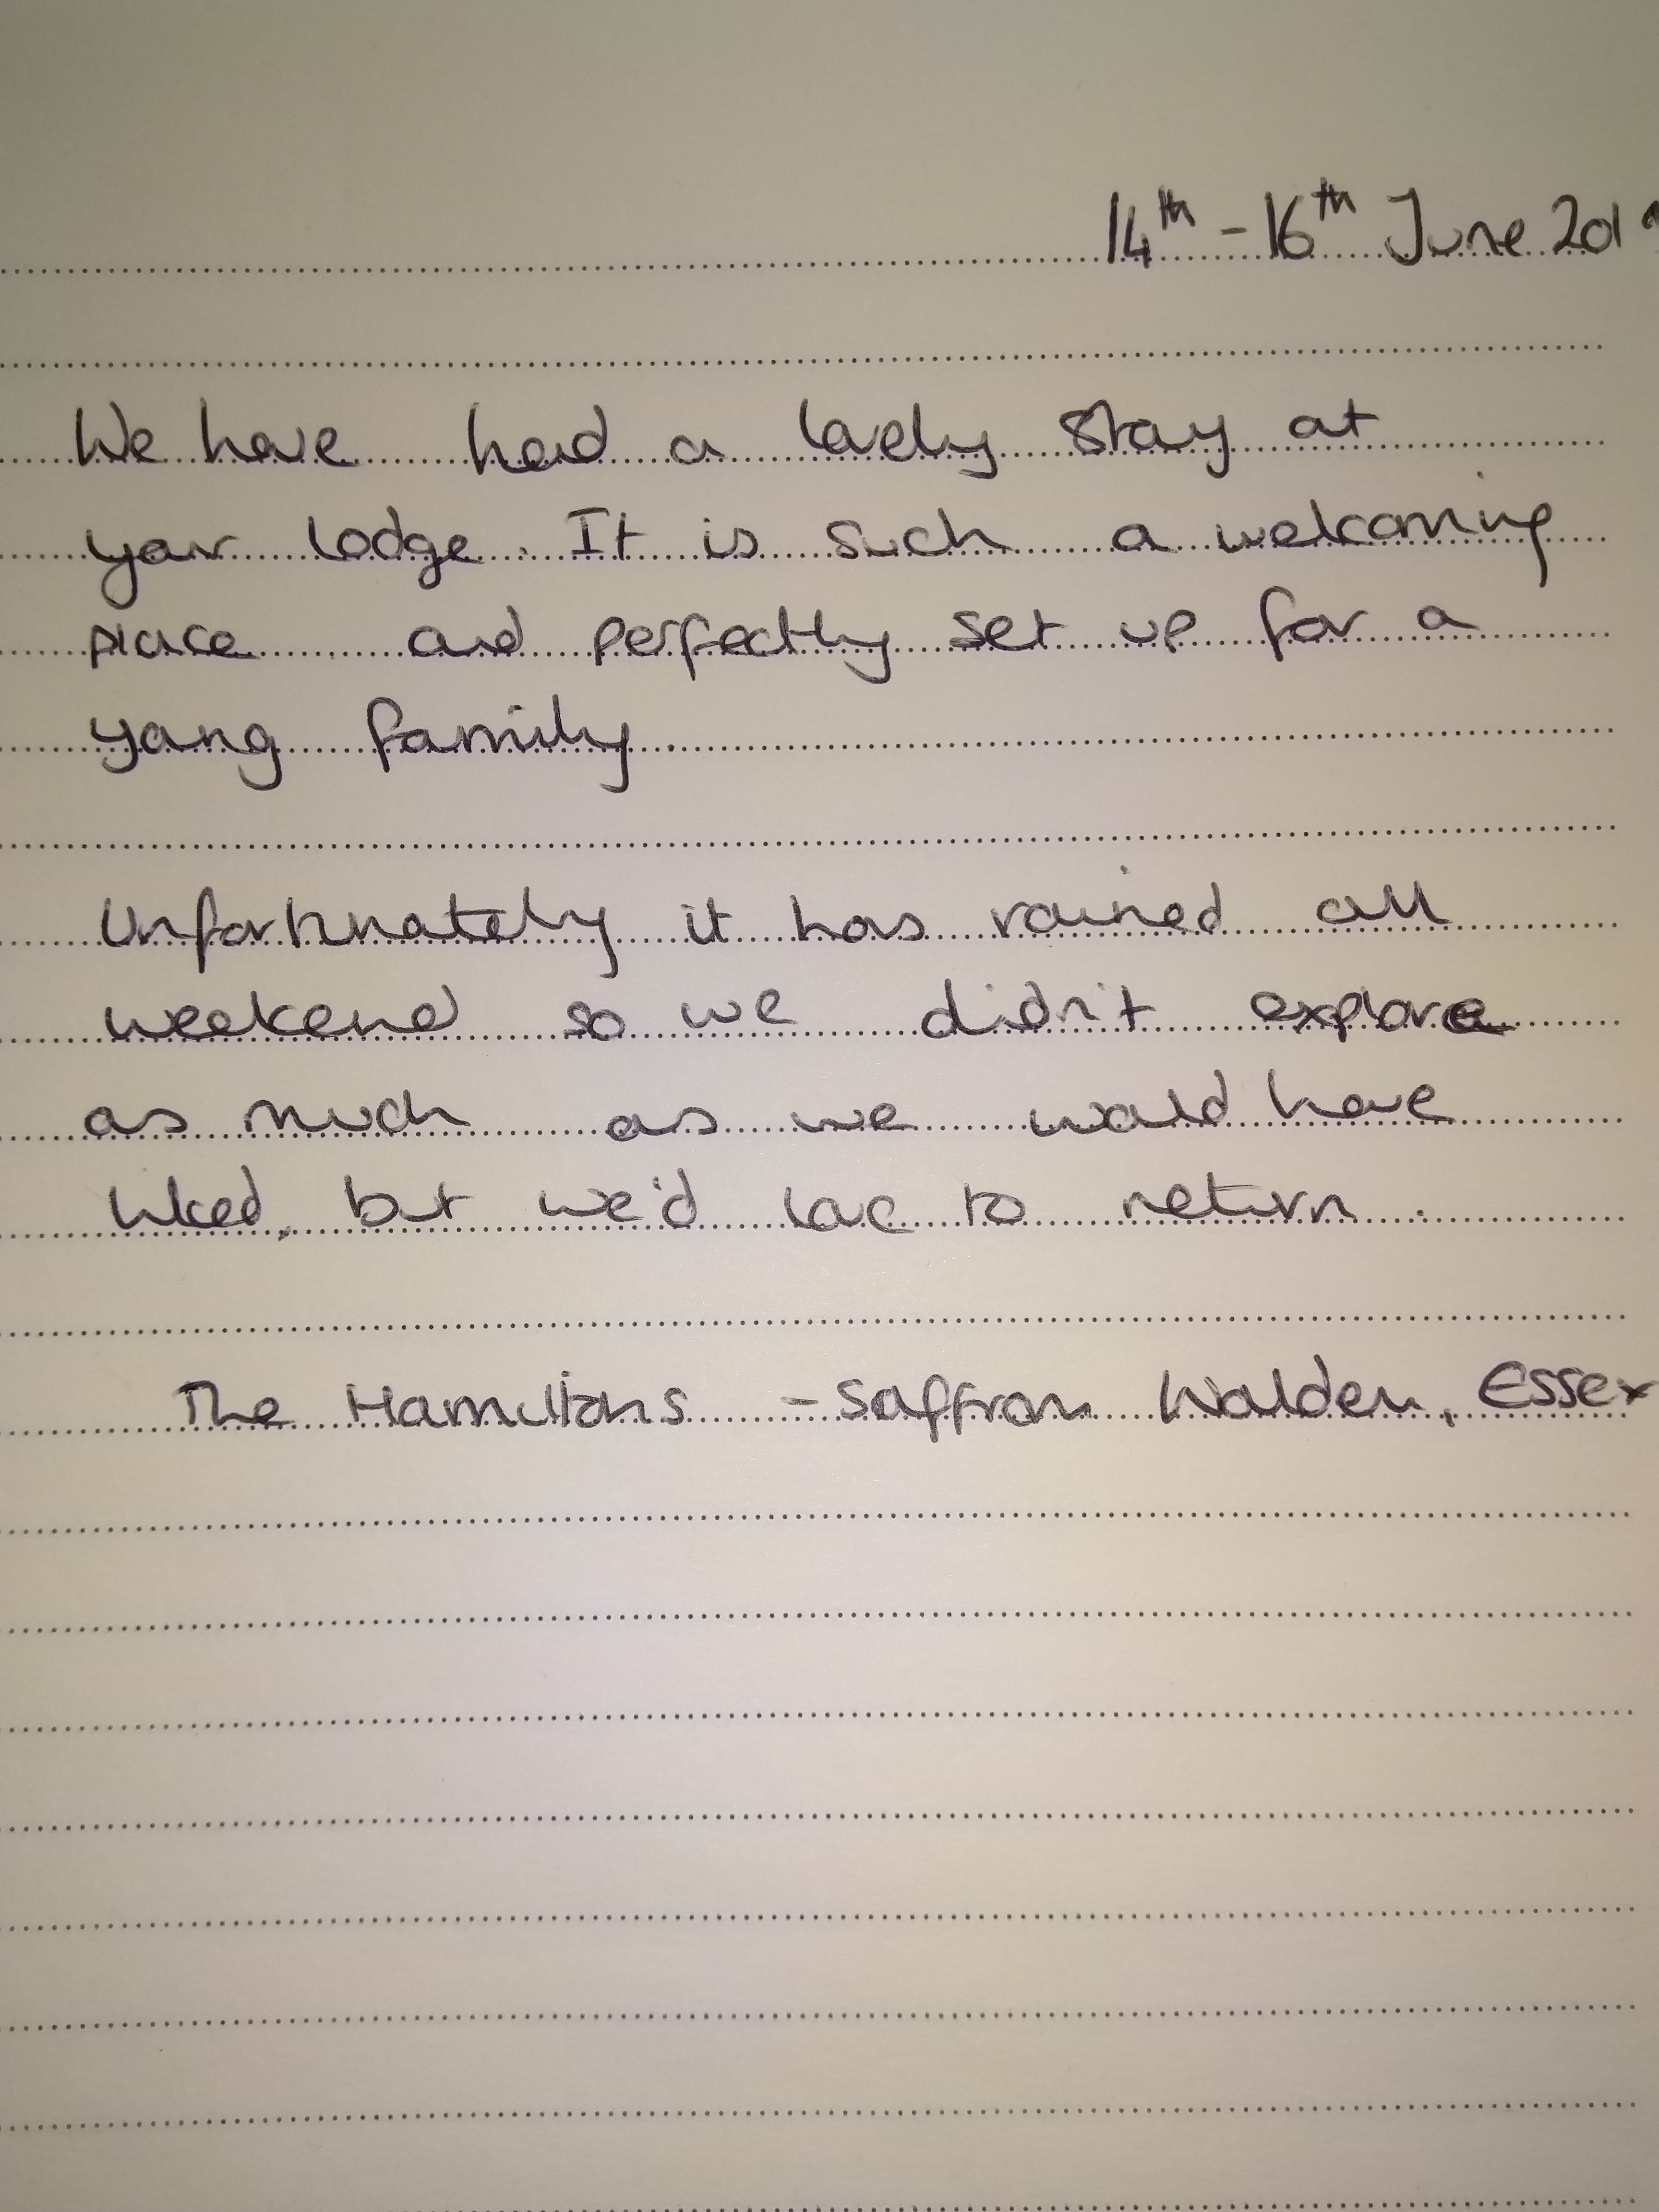 14th - 16th June 2019
We have had a lovely stay at
your lodge. It is such a welcoming
place and perfectly set up for a
young family.
Unfortunately it has rained all
weekend so we didn't explore
as much as we would have
liked, but we'd love to return.
The Hamiltons - Saffron Walden, Essex